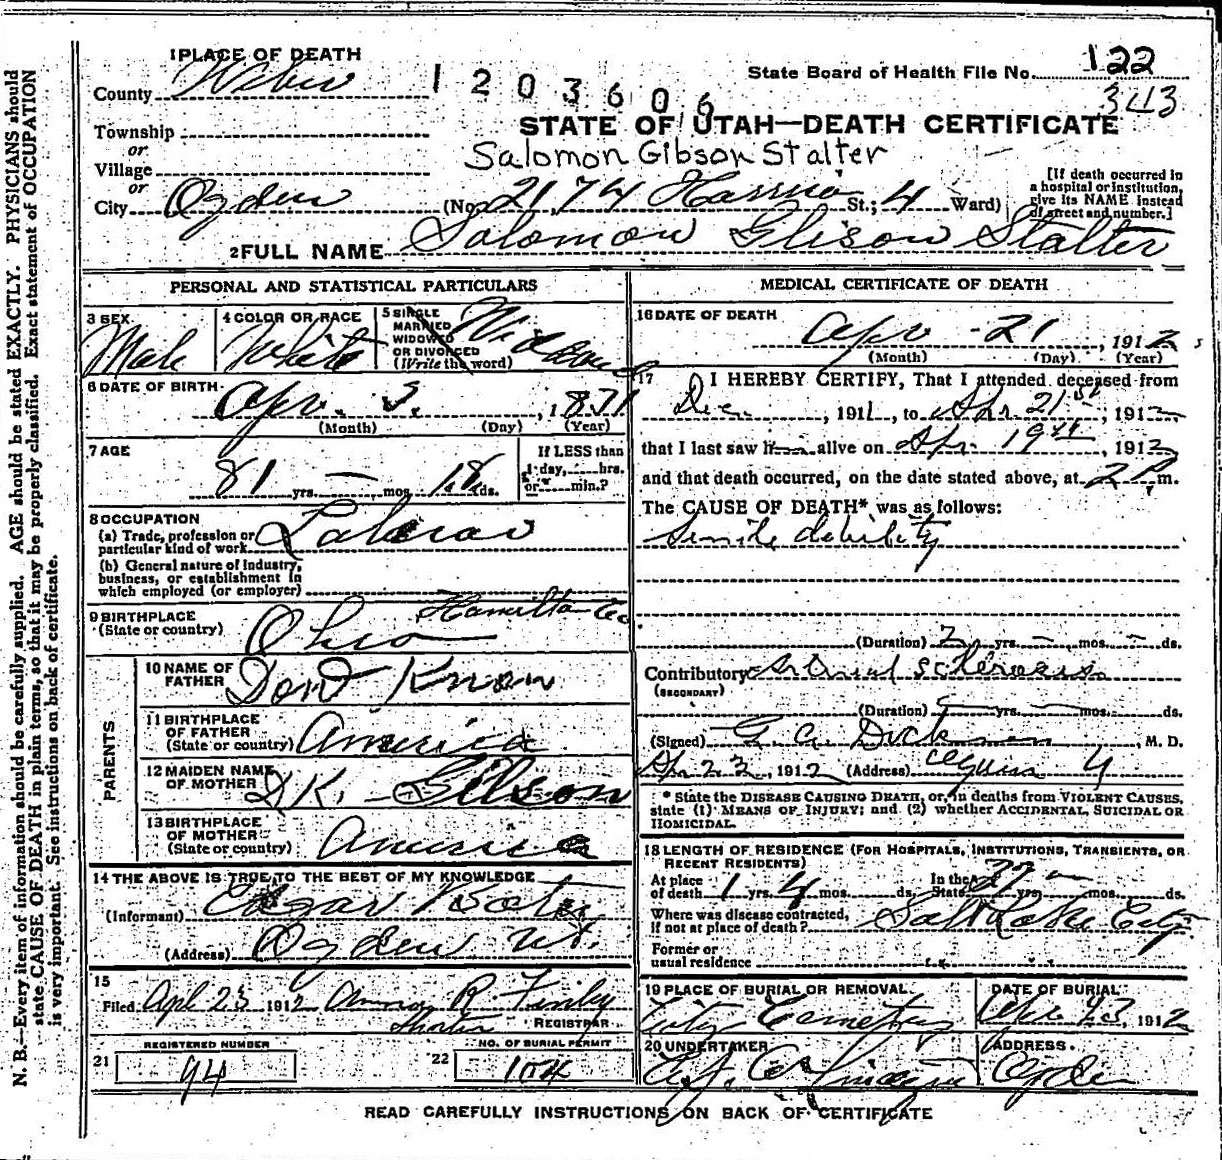 1 PLACE OF DEATH
County Weber
1 2 0 3 6 0 6
State Board of Health File No. 122
343
STATE OF UTAH—DEATH CERTIFICATE
Township
or
Salomon Gibson Stalter
Village
or
City Ogden (No. 2174 St.; 4 Ward)
[If death occurred in
a hospital or institution,
give its NAME instead
of street and number.]
2 FULL NAME Solomon Glison Stalter
PERSONAL AND STATISTICAL PARTICULARS
3 SEX
Male
4 COLOR OR RACE
White
5 SINGLE
MARRIED
WIDOWED
OR DIVORCED
(Write the word)
Widowed
6 DATE OF BIRTH
Apr. 3, 1831
(Month) (Day) (Year)
7 AGE
81 yrs. — mos. 18 ds.
If LESS than
1 day, hrs.
or min.?
8 OCCUPATION
(a) Trade, profession or
particular kind of work Laborer
(b) General nature of industry,
business, or establishment in
which employed (or employer)
9 BIRTHPLACE
(State or country)
Hamilton Co
Ohio
PARENTS
10 NAME OF
FATHER
Dont Know
11 BIRTHPLACE
OF FATHER
(State or country) America
12 MAIDEN NAME
OF MOTHER
D.K. — Gilson
13 BIRTHPLACE
OF MOTHER
(State or country) America
14 THE ABOVE IS TRUE TO THE BEST OF MY KNOWLEDGE
(Informant) Edgar
(Address) Ogden Ut.
15
Filed Apl 23 1912 R. Finley
REGISTRAR
REGISTERED NUMBER
21 94
NO. OF BURIAL PERMIT
22 104
MEDICAL CERTIFICATE OF DEATH
16 DATE OF DEATH
Apr - 21, 1912
(Month) (Day) (Year)
17 I HEREBY CERTIFY, That I attended deceased from
Dec., 1911, to Apr 21st, 1912
that I last saw h alive on Apr. 19th, 1912
and that death occurred, on the date stated above, at 2 P. m.
The CAUSE OF DEATH* was as follows:
Senile debility
(Duration) 2 yrs. — mos. — ds.
Contributory Arterial Sclerosis
(SECONDARY)
(Duration) 5 yrs. — mos. ds.
(Signed) G. A. Dickson, M. D.
Apr 23, 1912 (Address)
* State the DISEASE CAUSING DEATH, or, in deaths from VIOLENT CAUSES,
state (1) MEANS OF INJURY; and (2) whether ACCIDENTAL, SUICIDAL OR
HOMICIDAL.
18 LENGTH OF RESIDENCE (FOR HOSPITALS, INSTITUTIONS, TRANSIENTS, OR
RECENT RESIDENTS)
At place
of death 1 yrs. 4 mos. ds. In the
State yrs. mos. ds.
Where was disease contracted,
if not at place of death? Salt Lake City
Former or
usual residence
19 PLACE OF BURIAL OR REMOVAL
City Cemetery
DATE OF BURIAL
Apr 23, 1912
20 UNDERTAKER
ADDRESS
Ogden
READ CAREFULLY INSTRUCTIONS ON BACK OF CERTIFICATE
N. B.—Every item of information should be carefully supplied. AGE should be stated EXACTLY. PHYSICIANS should
state CAUSE OF DEATH in plain terms, so that it may be properly classified. Exact statement of OCCUPATION
is very important. See instructions on back of certificate.